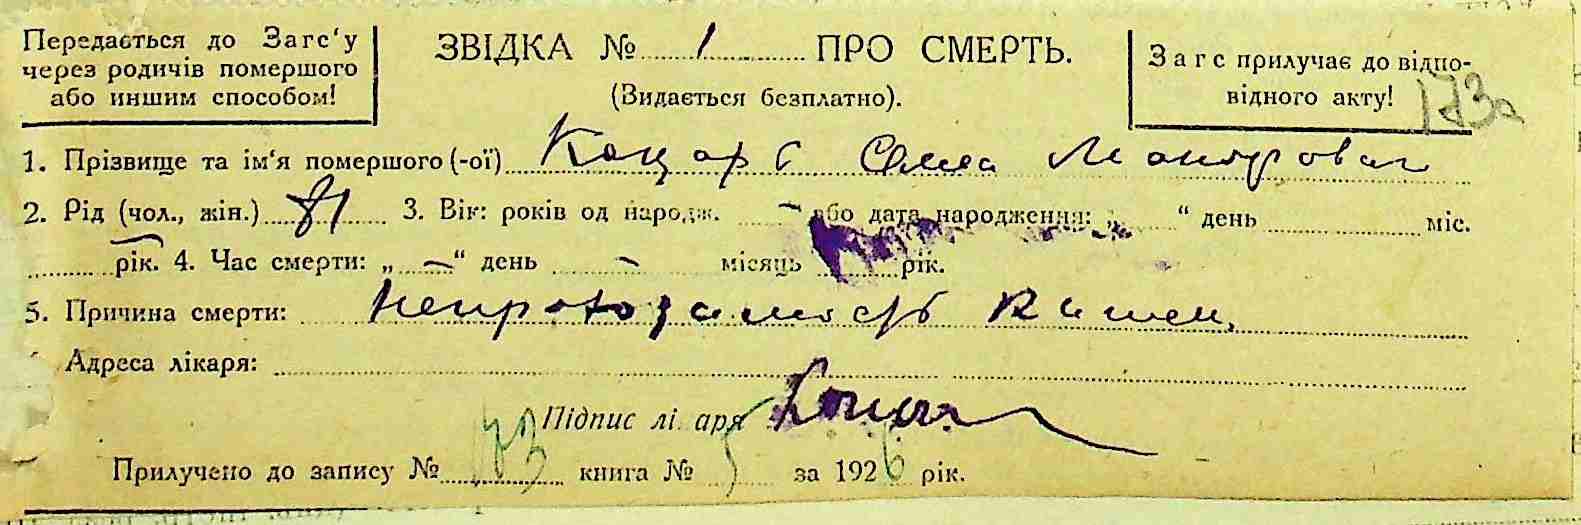 Передається до Загс‘у
через родичів помершого
або иншим способом!
ЗВІДКА № 1 ПРО СМЕРТЬ.
(Видається безплатно).
Загс прилучає до відпо-
відного акту!
173а
1. Прізвище та ім‘я помершого (-ої)
2. Рід (чол., жін.) 3. Вік: років од народж. – або дата народження: „ “ день міс.
рік. 4. Час смерти: „ – “ день – місяць рік.
5. Причина смерти: Непроходимость кишеч.
Адреса лікаря:
Підпис лі аря
Прилучено до запису № 173 книга № 5 за 1926 рік.